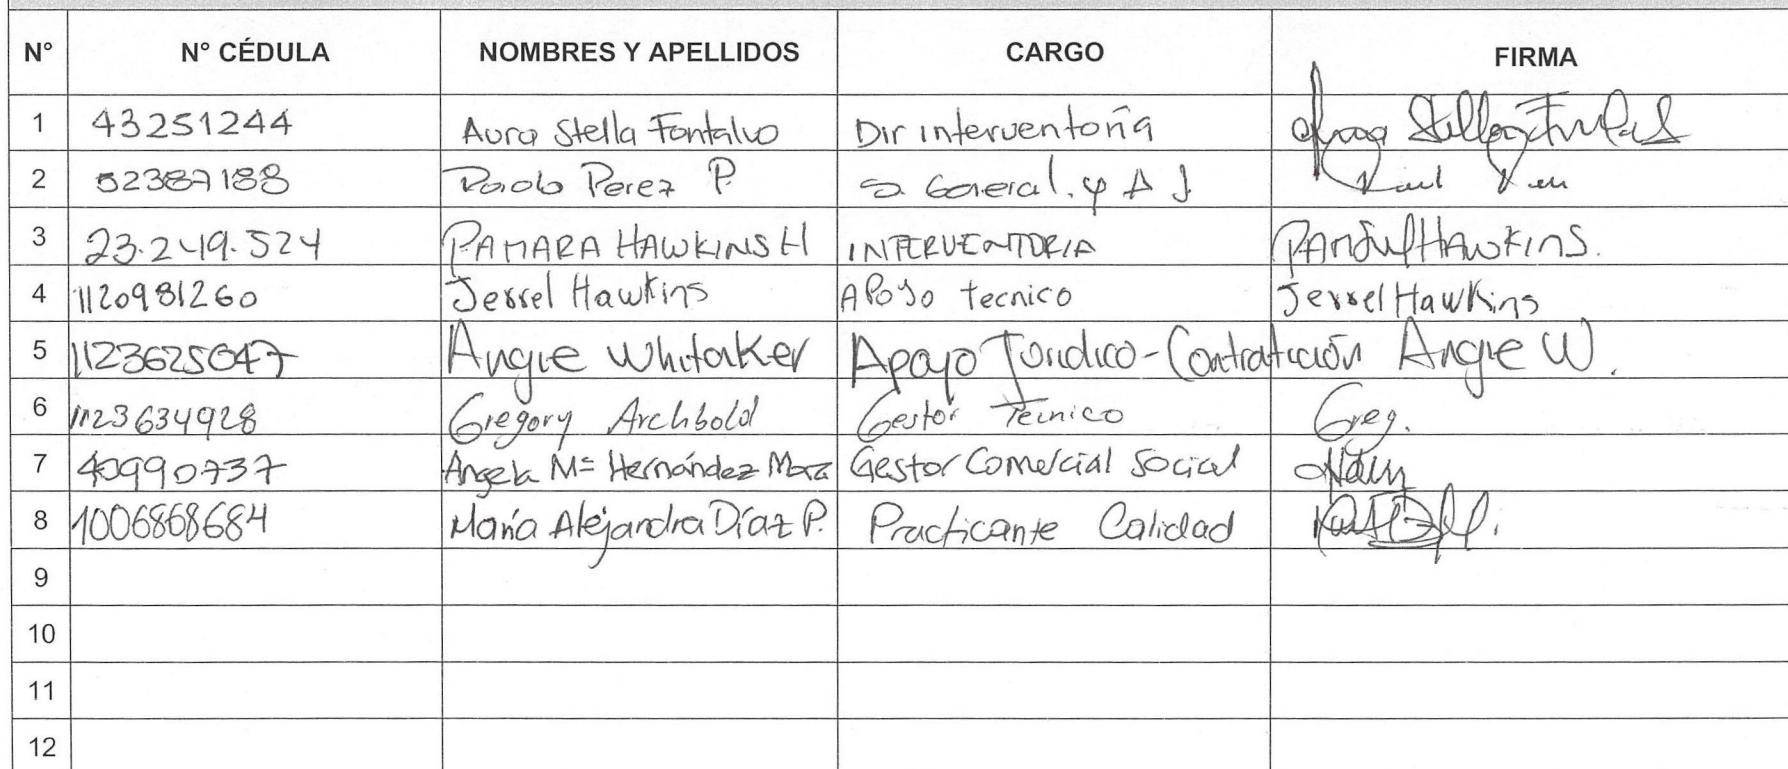 N° N° CÉDULA NOMBRES Y APELLIDOS CARGO FIRMA
1 43251244 Aura Stella Fontalvo Dir interventoría Aura Stella
2 52387188 Paolo Perez P. General. y A J.
3 23.249.524 PAMARA HAWKINS H INTERVENTORIA HAWKINS.
4 1120981260 Jerrel Hawkins APoyo tecnico Jerrel Hawkins
5 1123625047 Angie Whitaker Apoyo Juridico - Contratación Angie W.
6 1123634928 Gregory Archbold Gestor Tecnico Greg.
7 40990737 Angela Mª Hernández Gestor Comercial Social
8 1006868684 María Alejandra Díaz P. Practicante Calidad
9
10
11
12